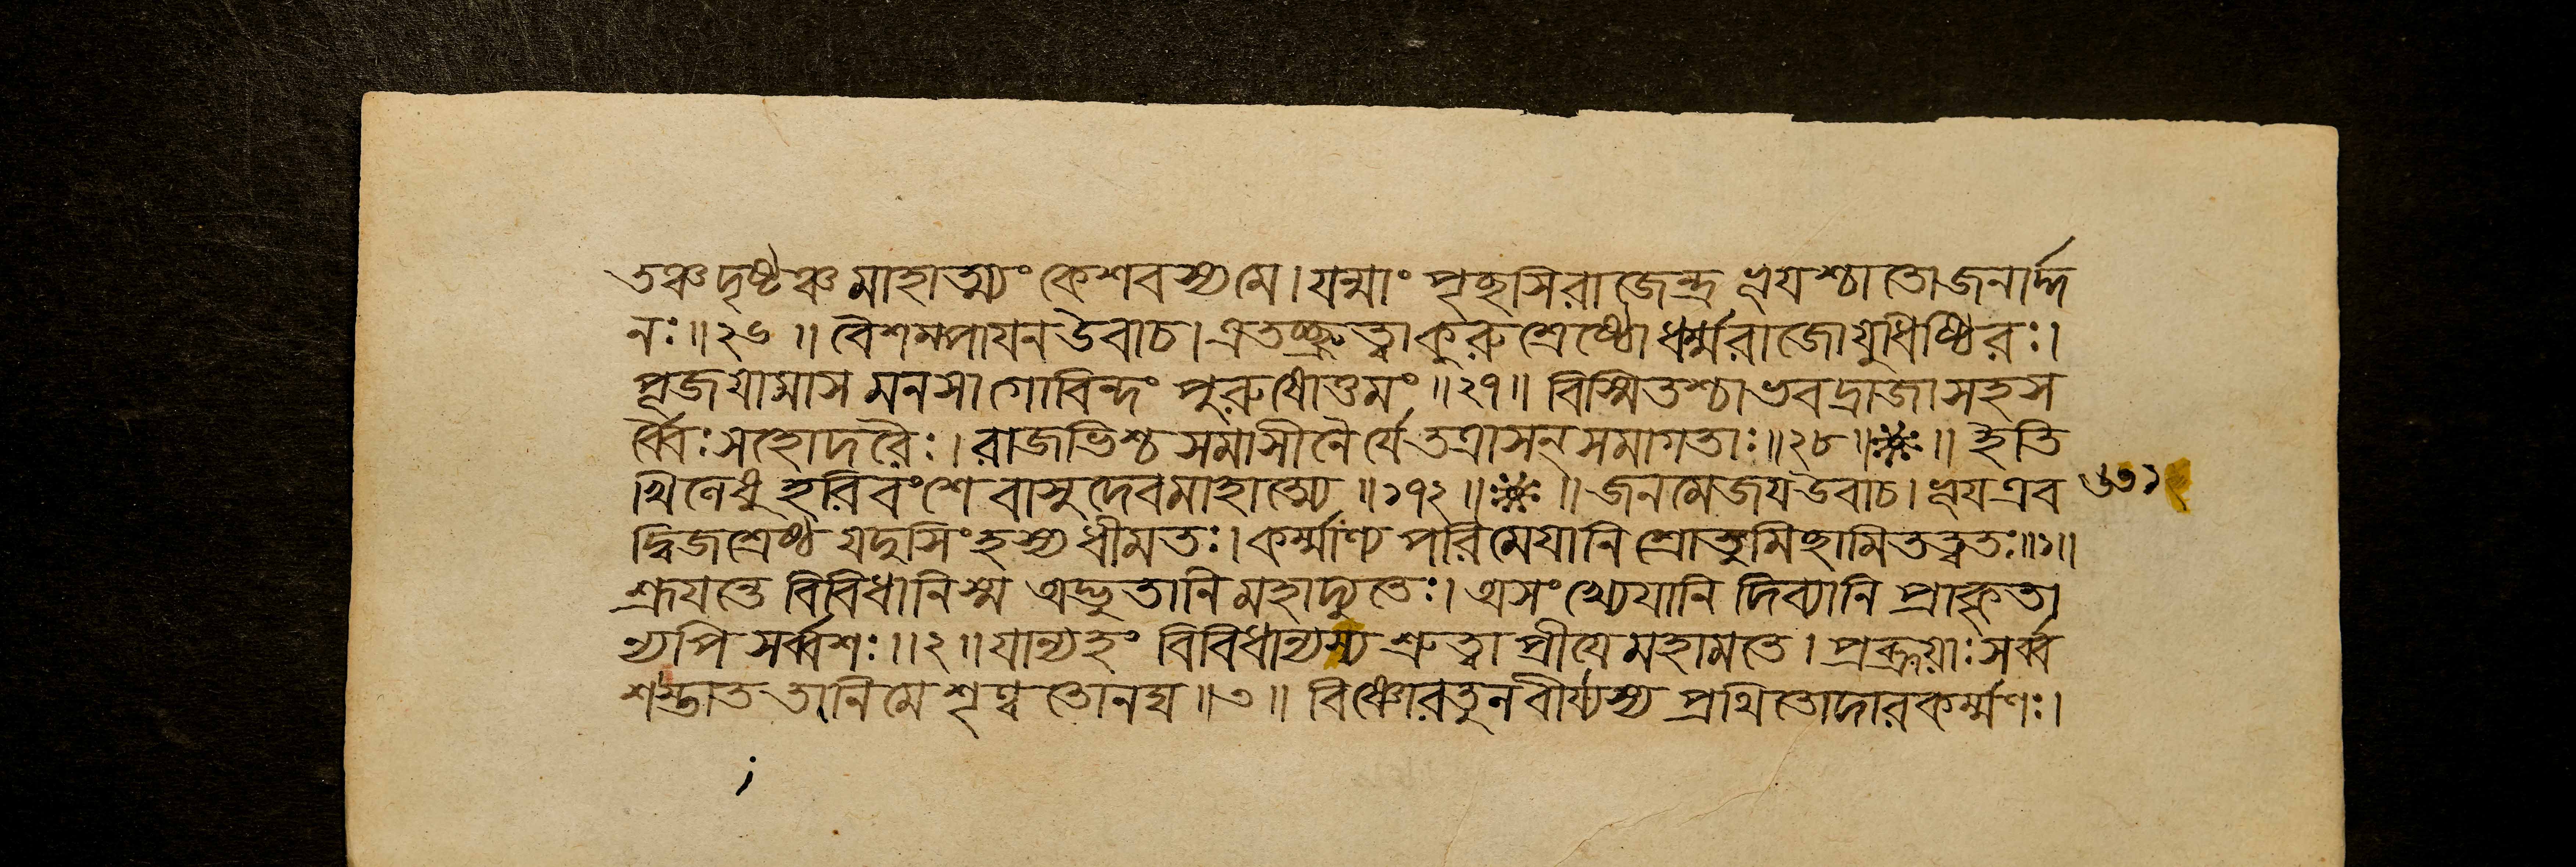 তঞ্চ দৃষ্টঞ্চ মাহাত্ম্যং কেশবস্য মে। যন্মাং পৃচ্ছসি রাজেন্দ্র ভূয়শ্চাতো জনার্দ্দ
নঃ॥২৬॥ বৈশম্পায়ন উবাচ। এতচ্ছ্রুত্বা কুরুশ্রেষ্ঠো ধর্ম্মরাজো যুধিষ্ঠিরঃ।
পূজয়ামাস মনসা গোবিন্দং পুরুষোত্তমং॥২৭॥ বিস্মিতশ্চাভবদ্রাজা সহ স
র্ব্বৈঃ সহোদরৈঃ। রাজভিশ্চ সমাসীনৈর্যে তত্রাসন্ সমাগতাঃ॥২৮॥※॥ ইতি
খিলেষু হরিবংশে বাসুদেবমাহাত্ম্যে॥১৭২॥※॥ জনমেজয় উবাচ। ভূয় এব
দ্বিজশ্রেষ্ঠ যদুসিংহস্য ধীমতঃ। কর্ম্মাণ্যপরিমেয়ানি শ্রোতুমিচ্ছামি তত্ত্বতঃ॥১॥
শ্রূয়ন্তে বিবিধানি স্ম অদ্ভুতানি মহাদ্যুতেঃ। অসংখ্যেয়ানি দিব্যানি প্রাকৃতা
ন্যপি সর্ব্বশঃ॥২॥ যান্যহং বিবিধান্যস্য শ্রুত্বা প্রীয়ে মহামতে। প্রব্রূয়াঃ সর্ব্ব
শস্তাত তানি মে শৃণ্বতোনঘ॥৩॥ বিষ্ণোরতুলবীর্য্যস্য প্রথিতোদারকর্ম্মণঃ।